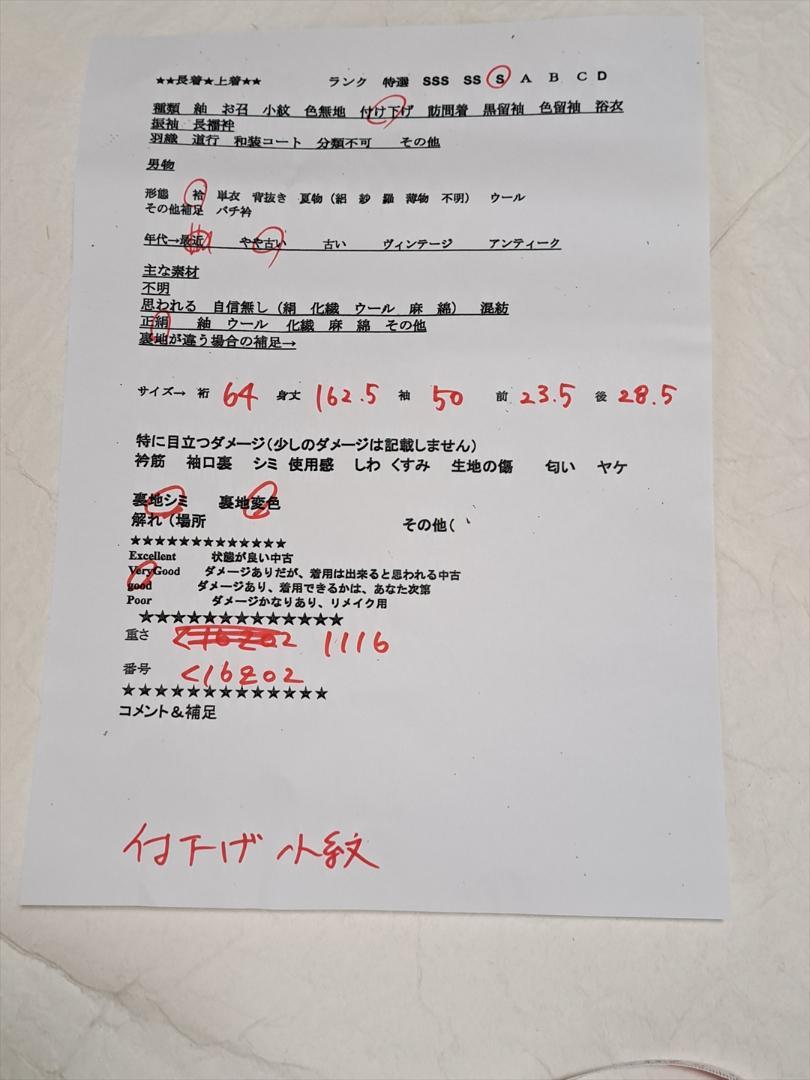 ★★長着★上着★★ ランク 特選 SSS SS S A B C D
種類 紬 お召 小紋 色無地 付け下げ 訪問着 黒留袖 色留袖 浴衣
振袖 長襦袢
羽織 道行 和装コート 分類不可 その他
男物
形態 袷 単衣 背抜き 夏物（絽 紗 羅 薄物 不明） ウール
その他補足 バチ衿
年代→最近 やや古い 古い ヴィンテージ アンティーク
主な素材
不明
思われる 自信無し（絹 化繊 ウール 麻 綿） 混紡
正絹 紬 ウール 化繊 麻 綿 その他
裏地が違う場合の補足→
サイズ→ 裄 64 身丈 162.5 袖 50 前 23.5 後 28.5
特に目立つダメージ（少しのダメージは記載しません）
衿筋 袖口裏 シミ 使用感 しわ くすみ 生地の傷 匂い ヤケ
裏地シミ 裏地変色
解れ（場所 その他（
★★★★★★★★★★★★★
Excellent 状態が良い中古
VeryGood ダメージありだが、着用は出来ると思われる中古
good ダメージあり、着用できるかは、あなた次第
Poor ダメージかなりあり、リメイク用
★★★★★★★★★★★★★
重さ 1116
番号 <16202
★★★★★★★★★★★★★
コメント＆補足
付下げ 小紋